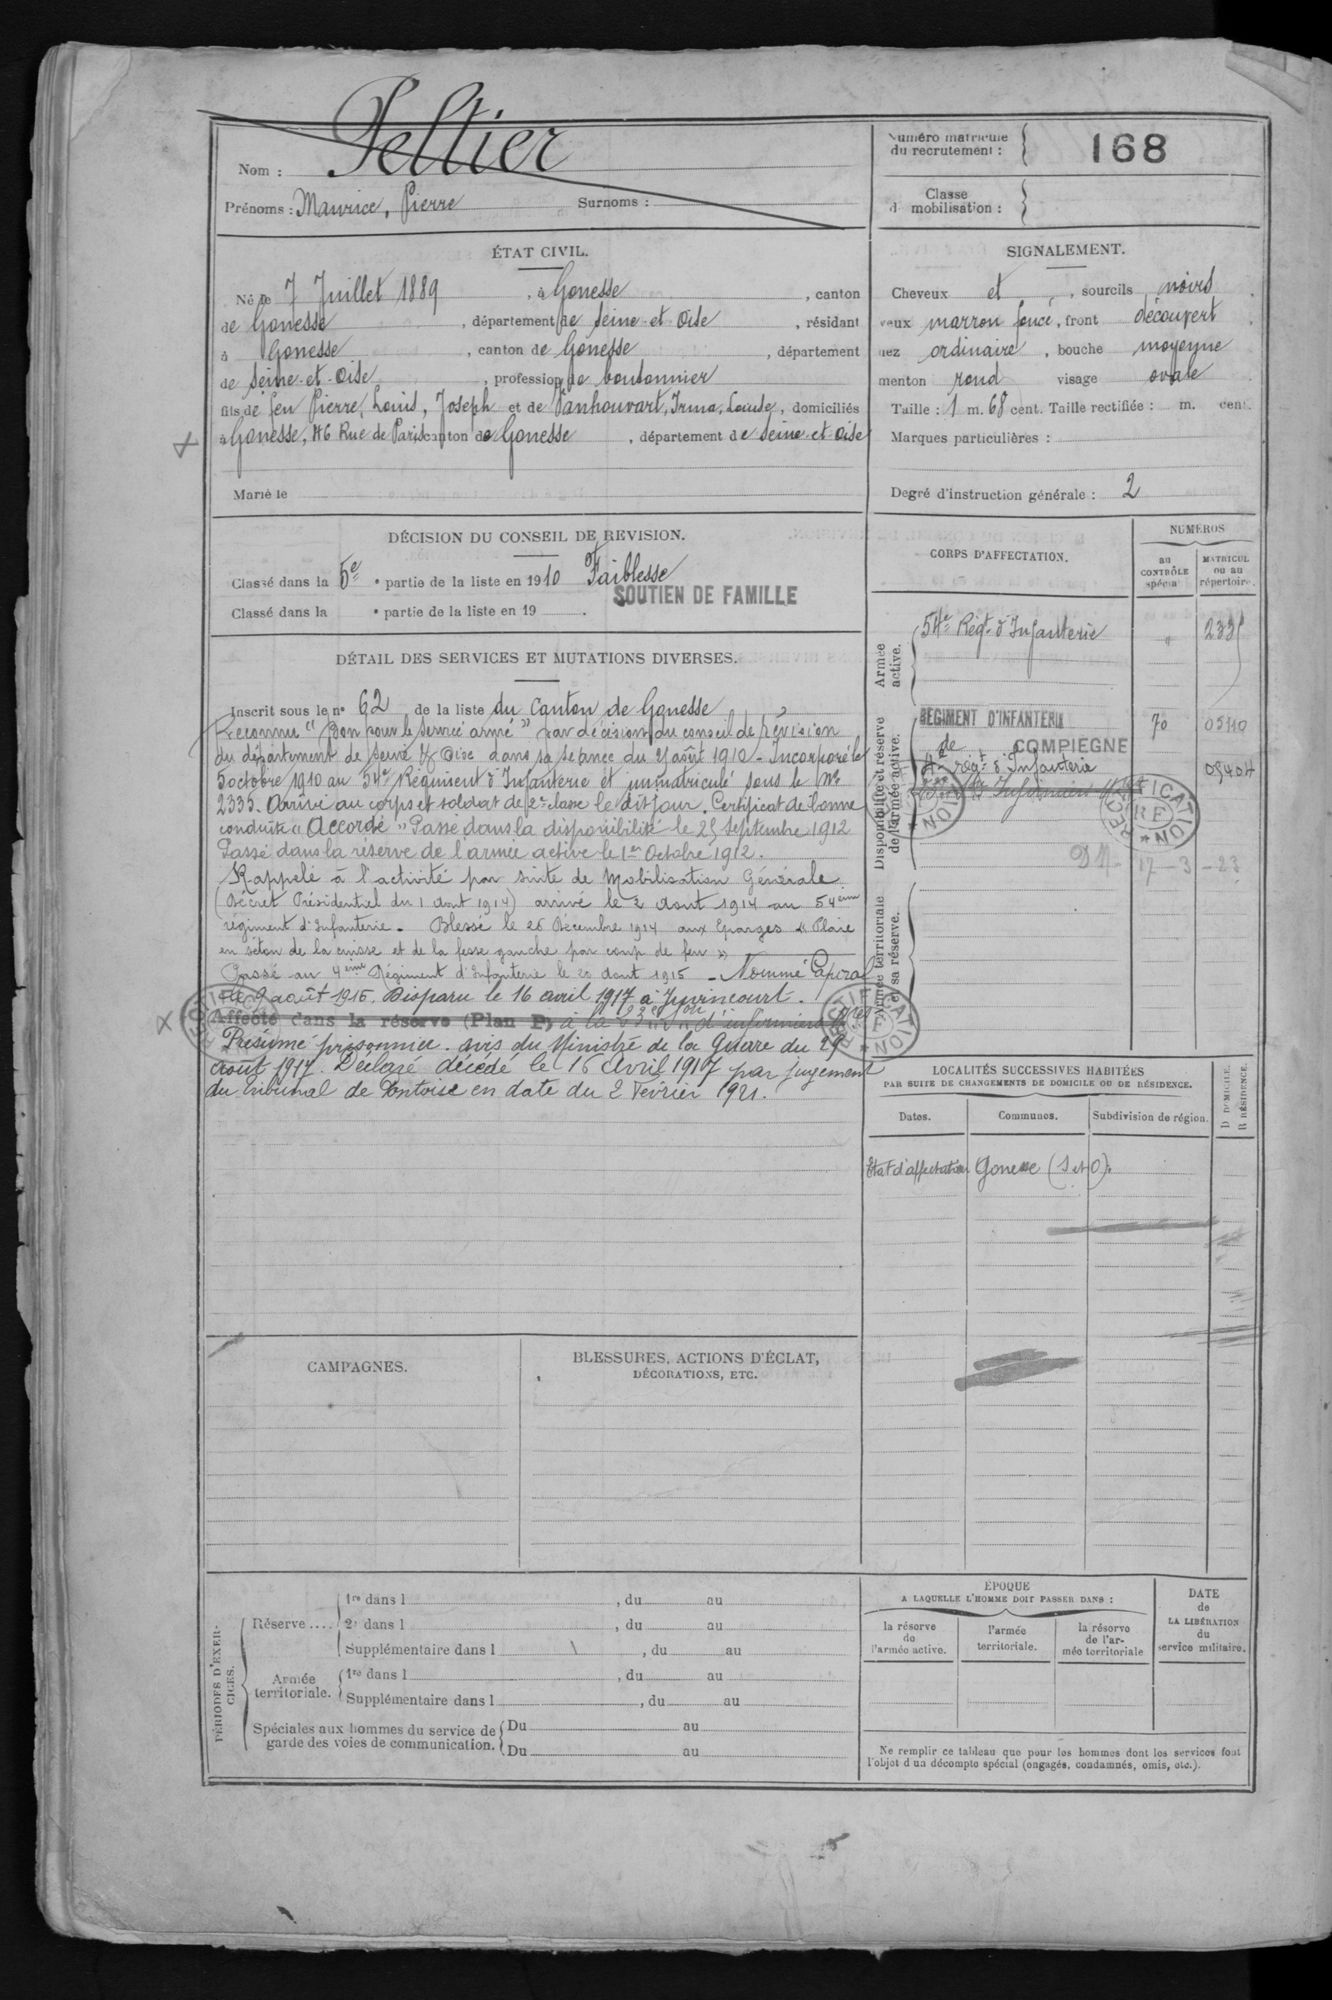 Nom : Peltier
Prénoms : Maurice, Pierre Surnoms :
Numéro matricule du recrutement : 168
Classe de mobilisation :
ÉTAT CIVIL.
Né le 7 Juillet 1889, à Gonesse, canton
de Gonesse, département de Seine et Oise, résidant
à Gonesse, canton de Gonesse, département
de Seine-et-Oise, profession de boutonnier
fils de feu Pierre, Louis, Joseph et de Vanhouvart, Irma, Louise, domiciliés
à Gonesse, 46 Rue de Paris canton de Gonesse, département de Seine-et-Oise
Marié le
SIGNALEMENT.
Cheveux et, sourcils noirs
yeux marron foncé, front découvert
nez ordinaire, bouche moyenne
menton rond visage ovale
Taille : 1 m. 68 cent. Taille rectifiée : m. cent.
Marques particulières :
Degré d'instruction générale : 2
DÉCISION DU CONSEIL DE REVISION.
Classé dans la 5e partie de la liste en 1910 Faiblesse
SOUTIEN DE FAMILLE
Classé dans la partie de la liste en 19
DÉTAIL DES SERVICES ET MUTATIONS DIVERSES.
Inscrit sous le n° 62 de la liste du Canton de Gonesse
Reconnu "Bon pour le service armé" par décision du conseil de révision
du département de Seine & Oise dans sa séance du août 1910 - Incorporé le
5 octobre 1910 au 54e Régiment d'Infanterie et immatriculé sous le No
2335. Arrivé au corps et soldat de 2e classe le dit jour. Certificat de bonne
conduite "Accordé" Passé dans la disponibilité le 25 Septembre 1912
Passé dans la réserve de l'armée active le 1er Octobre 1912.
Rappelé à l'activité par suite de Mobilisation Générale
(Décret Présidentiel du 1 Aout 1914) arrivé le 2 Aout 1914 au 54ème
régiment d'Infanterie. Blessé le 26 Décembre 1914 aux Eparges "Plaie
en séton de la cuisse et de la fesse gauche par coup de feu"
Passé au 4ème Régiment d'Infanterie le 20 Aout 1915 - Nommé Caporal
le 9 août 1916. Disparu le 16 avril 1917 à Juvincourt.
Affecté dans la réserve (Plan P) à la 23e Son d'infirmiers
Présumé prisonnier. avis du Ministre de la Guerre du 29
aout 1917. Déclaré décédé le 16 Avril 1917 par jugement
du Tribunal de Pontoise en date du 2 Février 1921.
CORPS D'AFFECTATION.
NUMÉROS
au CONTRÔLE spécial
MATRICULE ou au répertoire.
Armée active.
54e Régt. d'Infanterie " 2335
Disponibilité et réserve de l'armée active.
REGIMENT D'INFANTERIE 70 05410
de COMPIEGNE
4e régt d'Infanterie 05404
RECTIFICATION
RF
17-3-23
Armée territoriale et sa réserve.
LOCALITÉS SUCCESSIVES HABITÉES
PAR SUITE DE CHANGEMENTS DE DOMICILE OU DE RÉSIDENCE.
Dates. Communes. Subdivision de région. D DOMICILE. R RÉSIDENCE.
Etat d'affectation Gonesse (S et O).
CAMPAGNES.
BLESSURES, ACTIONS D'ÉCLAT,
DÉCORATIONS, ETC.
PÉRIODES D'EXERCICES.
Réserve.... 1re dans l , du au
2e dans l , du au
Supplémentaire dans l , du au
Armée territoriale. 1re dans l , du au
Supplémentaire dans l , du au
Spéciales aux hommes du service de garde des voies de communication. Du au
Du au
EPOQUE
A LAQUELLE L'HOMME DOIT PASSER DANS :
la réserve de l'armée active.
l'armée territoriale.
la réserve de l'armée territoriale
DATE de LA LIBÉRATION du service militaire.
Ne remplir ce tableau que pour les hommes dont les services font
l'objet d'un décompte spécial (engagés, condamnés, omis, etc.).